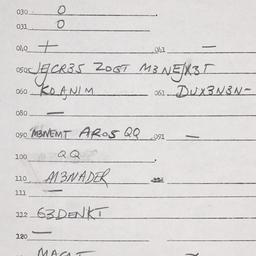 030 O
031 O
040 + 041 —
050 JEJCR3S ZOGT M3NEJX3T
060 KDANIM 061 DUX3N3N-
080 —
090 M3NEMT AROS QQ 091 —
100 QQ
110 M3NADER
111 —
112 G3DENKT
120 —